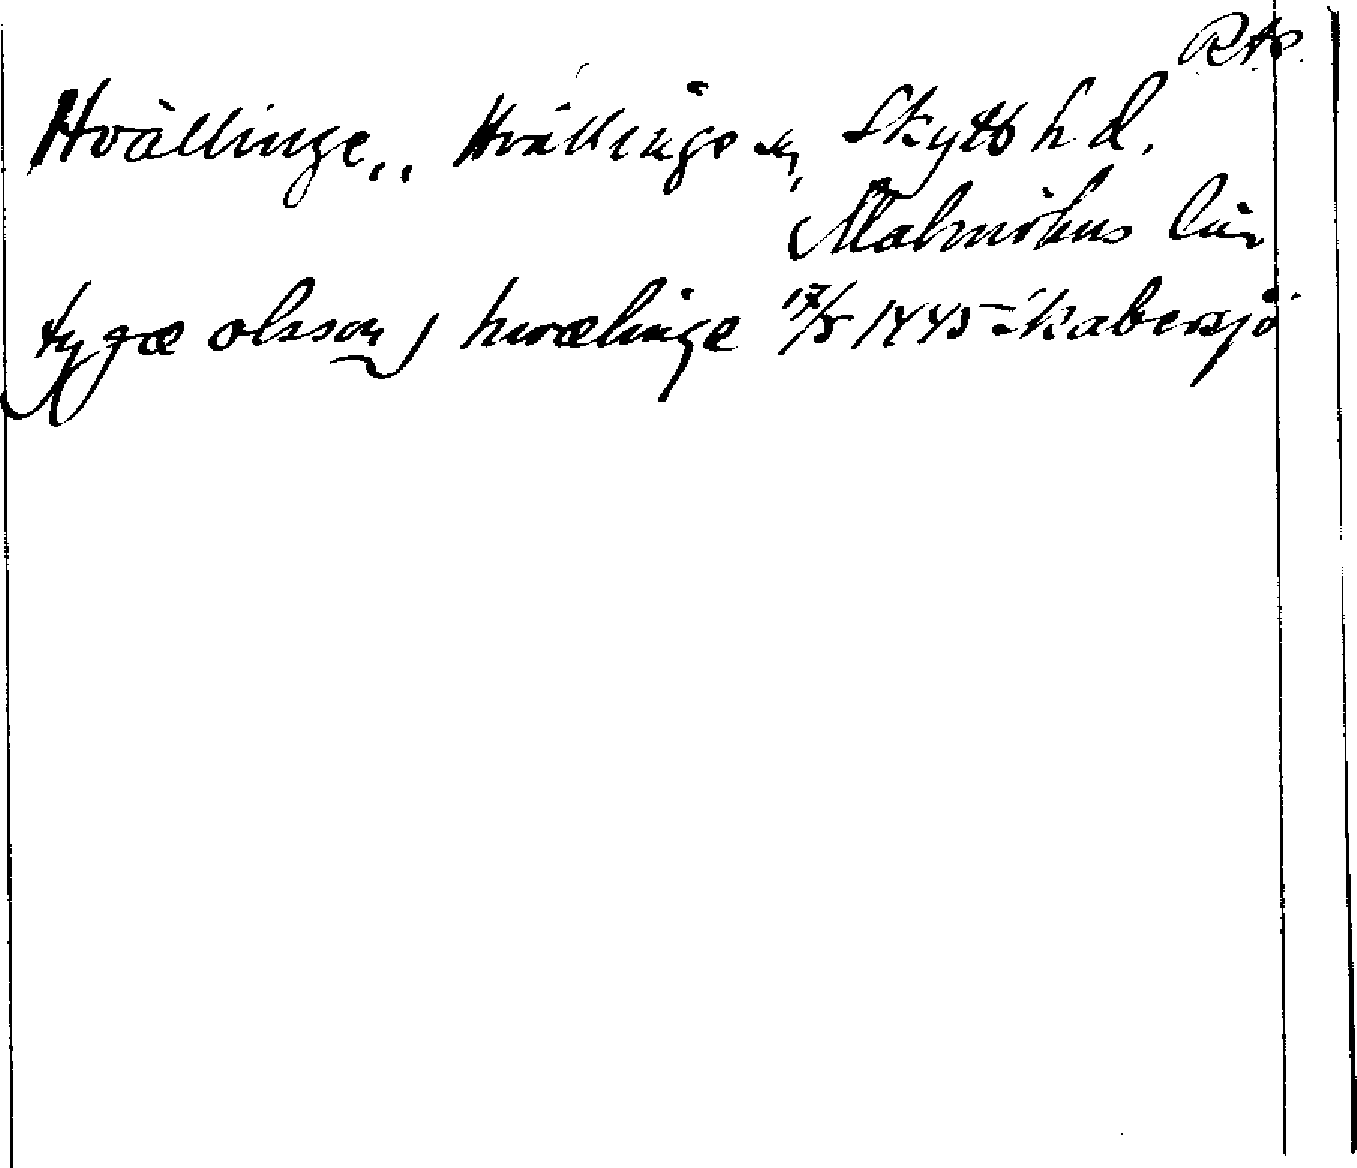 Rtp.
Hvällinge,, Hvällinge sn, Skytts hd.
Malmöhus län
tygæ olsson j hwælinge 17/5 1445 Skabersjö